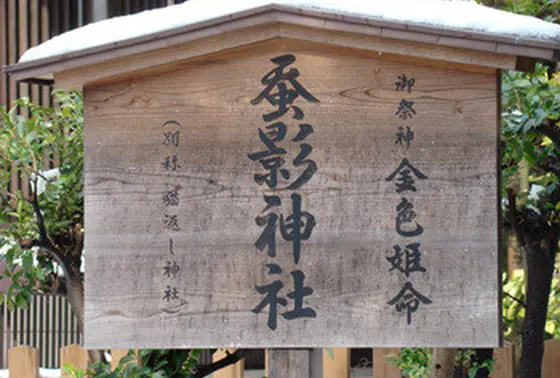 御祭神 金色姫命
蚕影神社
(別称 猫返し神社)